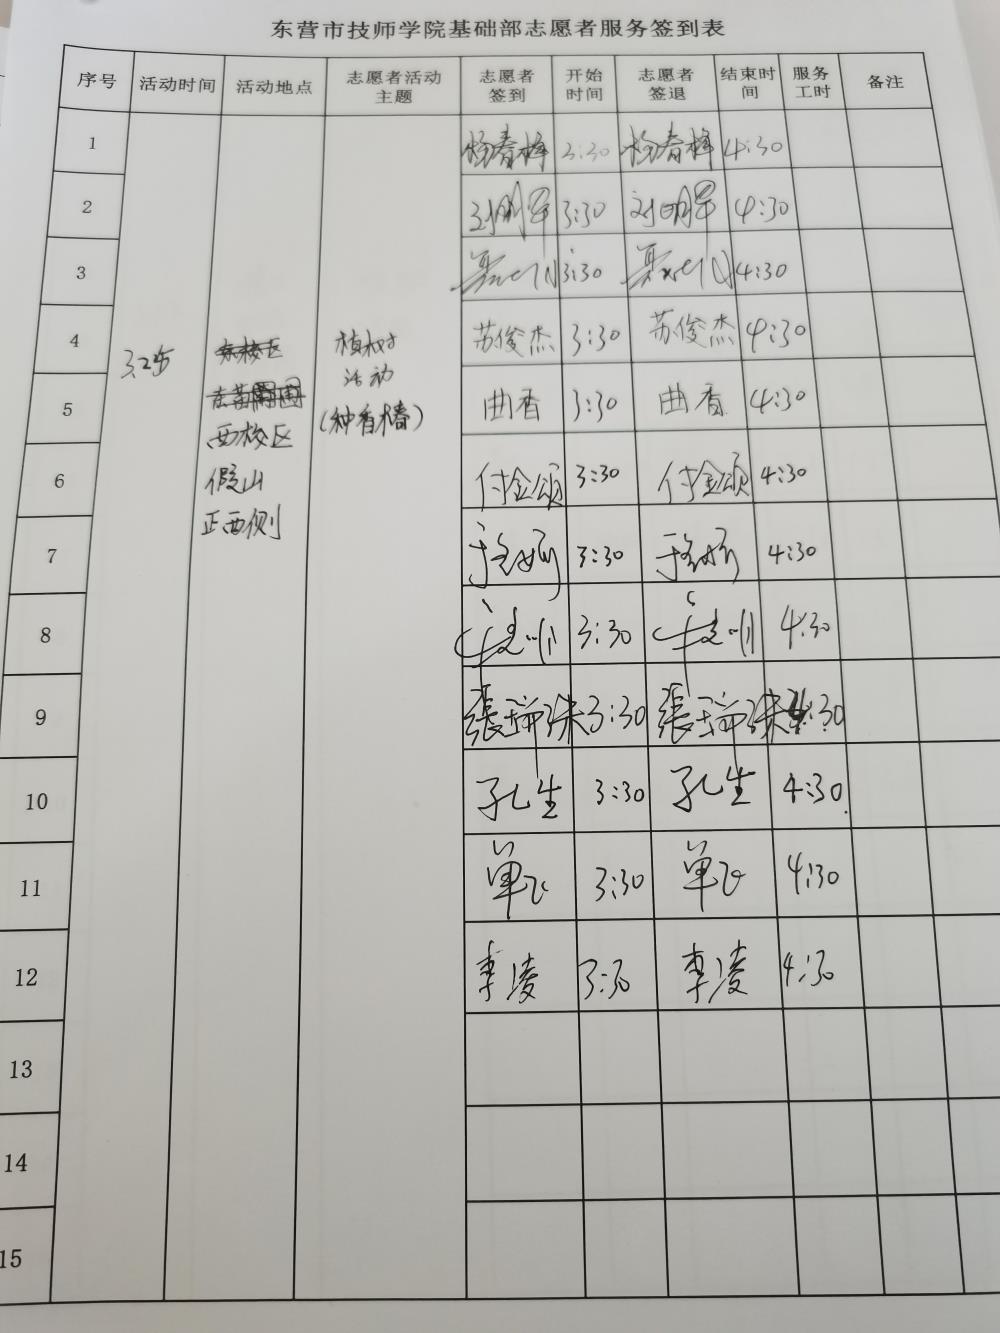 东营市技师学院基础部志愿者服务签到表
序号 活动时间 活动地点 志愿者活动主题 志愿者签到 开始时间 志愿者签退 结束时间 服务工时 备注
1 杨春梅 3:30 杨春梅 4:30
2 3:30 4:30
3 3:30 4:30
4 苏俊杰 3:30 苏俊杰 4:30
5 曲香 3:30 曲香 4:30
6 付金颂 3:30 付金颂 4:30
7 3:30 4:30
8 3:30 4:30
9 3:30 4:30
10 孔生 3:30 孔生 4:30
11 单飞 3:30 单飞 4:30
12 李凌 3:30 李凌 4:30
13
14
15
3.25
西校区
假山
正西侧
植树
活动
(种香椿)